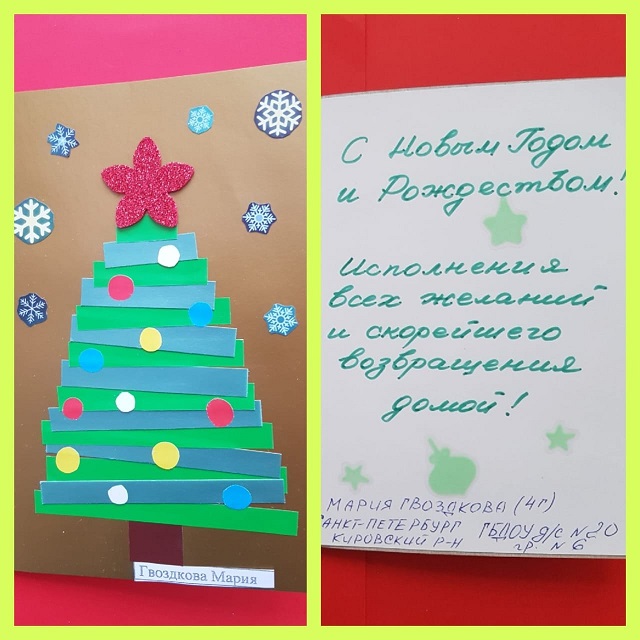 Гвоздкова Мария
С Новым Годом
и Рождеством!
Исполнения
всех желаний
и скорейшего
возвращения
домой!
МАРИЯ ГВОЗДКОВА (4г)
САНКТ-ПЕТЕРБУРГ ГБДОУ д/с №20
КИРОВСКИЙ Р-Н гр. №6